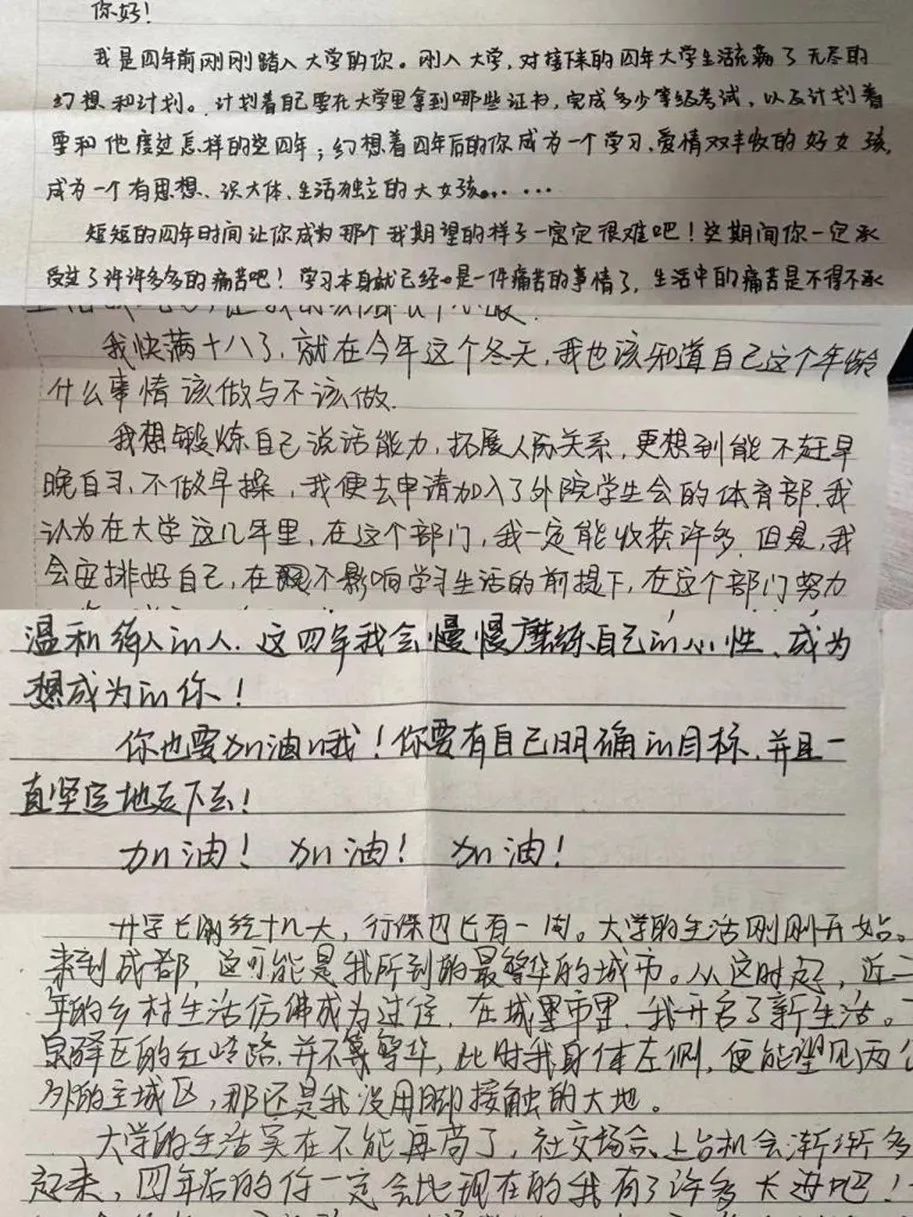 你好！
我是四年前刚刚踏入大学的你。刚入大学，对接下来的四年大学生活充满了无尽的
幻想和计划。计划着自己要在大学里拿到哪些证书，完成多少等级考试，以及计划着
要和他度过怎样的这四年；幻想着四年后的你成为一个学习、爱情双丰收的好女孩，
成为一个有思想、识大体、生活独立的大女孩……
短短的四年时间让你成为那个我期望的样子一定很难吧！这期间你一定承
受了许许多多的痛苦吧！学习本身就已经是一件痛苦的事情了，生活中的痛苦是不得不承
我快满十八了，就在今年这个冬天，我也该知道自己这个年龄
什么事情该做与不该做.
我想锻炼自己说话能力，拓展人际关系，更想到能不赶早
晚自习，不做早操，我便去申请加入了外院学生会的体育部.我
认为在大学这几年里，在这个部门，我一定能收获许多.但是，我
会安排好自己，在不影响学习生活的前提下，在这个部门努力
温和待人的人.这四年我会慢慢磨练自己的心性、成为
想成为的你！
你也要加油哦！你要有自己明确的目标.并且一
直坚定地走下去！
加油！ 加油！ 加油！
开学已刚经十几天，行课也已有一周。大学的生活刚刚开始。
来到成都，这可能是我所到的最繁华的城市。从这时起，近二
年的乡村生活仿佛成为过往，在城里市里，我开启了新生活。
泉驿区的红岭路，并不算繁华，此时我身体左侧，便能望见两公
外的主城区，那还是我没用脚接触的大地。
大学的生活实在不能再苟了，社交场合、上台机会渐渐多
起来，四年后的你一定会比现在的我有了许多大进吧！